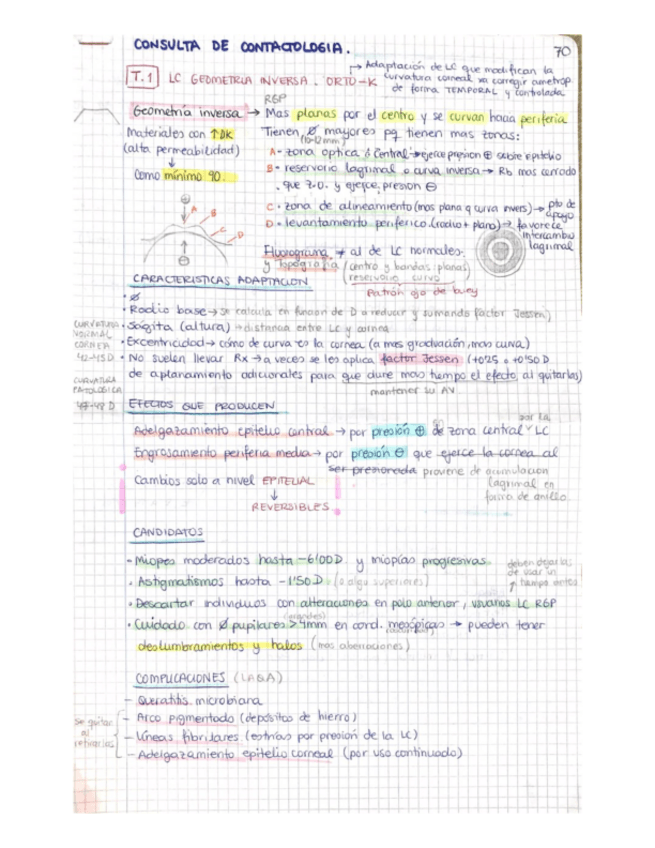 CONSULTA DE CONTACTOLOGIA.
70
T.1 LC GEOMETRIA INVERSA. ORTO-K
→ Adaptación de LC que modifican la
curvatura corneal xa corregir ametrop.
de forma TEMPORAL y controlada
RGP
Geometría inversa → Mas planas por el centro y se curvan hacia periferia
Materiales con ↑DK
(alta permeabilidad)
↓
Como mínimo 90.
Tienen Ø mayores pq tienen mas zonas:
(10-12mm)
A- zona optica ó central → ejerce presion ⊕ sobre epitelio
B- reservorio lagrimal o curva inversa → Rb mas cerrado
que z.o. y ejerce presion ⊖
C- zona de alineamiento (mas plana q curva invers) → pto de
apoyo
D- levantamiento periferico (radio + plano) → favorece
intercambio
lagrimal
⊕
A
B
C
D
⊖
Fluorograma ≠ al de LC normales.
y topografia (centro y bandas planas)
reservorio curvo
Patrón ojo de buey
CARACTERISTICAS ADAPTACION
• Ø
• Radio base → se calcula en funcion de D a reducir y sumando factor Jessen)
• Sagita (altura) → distancia entre LC y cornea
• Excentricidad → cómo de curva es la cornea (a mas graduación, mas curva)
• No suelen llevar Rx → a veces se les aplica factor Jessen (+0'25 o +0'50 D
de aplanamiento adicionales para que dure mas tiempo el efecto al quitarlas)
mantener su AV
CURVATURA
NORMAL
CORNEA
42-45 D
CURVATURA
PATOLOGICA
47-48 D
EFECTOS QUE PRODUCEN
Adelgazamiento epitelio central → por presión ⊕ de zona central LC
por la
Engrosamiento periferia media → por presión ⊖ que ejerce la cornea al
ser presionada proviene de acumulacion
lagrimal en
forma de anillo
Cambios solo a nivel EPITELIAL
↓
REVERSIBLES
CANDIDATOS
• Miopes moderados hasta -6'00D y miopías progresivas
• Astigmatismos hasta -1'50 D (o algo superiores)
• Descartar individuos con alteraciones en polo anterior, usuarios LC RGP
deben dejarlas
de usar un
↑ tiempo antes
• Cuidado con Ø pupilares >4mm en cond. mesópicas → pueden tener
deslumbramientos y halos (mas aberraciones)
COMPLICACIONES (LA&A)
- Queratitis microbiana
- Arco pigmentado (depositos de hierro)
- Líneas fibrilares (estrías por presión de la LC)
- Adelgazamiento epitelio corneal (por uso continuado)
se quitan
al
retirarlas